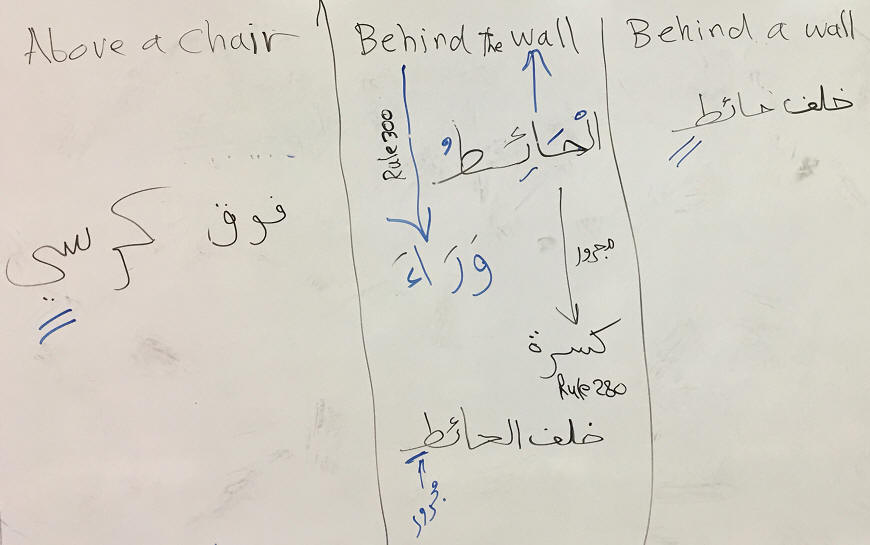 Above a Chair
فوق كرسي
Behind the wall
Rule 300
الْحَائِطُ
وَرَاءَ
مجرور
كسرة
Rule 280
خلف الحائط
مجرور
Behind a wall
خلف حائط